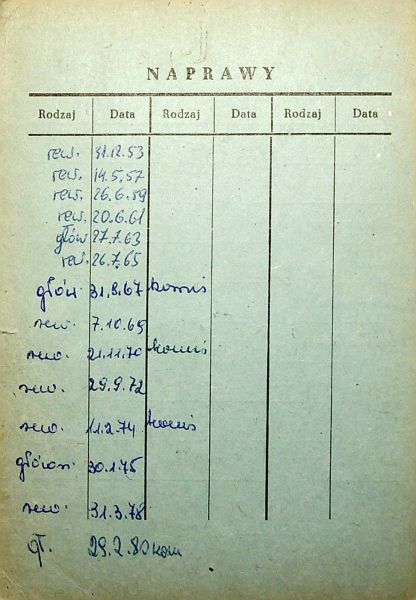 NAPRAWY
Rodzaj Data Rodzaj Data Rodzaj Data
rew. 31.12.53
rew. 14.5.57
rew. 26.6.59
rew. 20.6.61
głów 27.7.63
rew. 26.7.65
głów. 31.8.67 komis
rew. 7.10.69
rew. 21.11.70 komis
rew. 29.9.72
rew. 11.2.74 komis
główn. 30.1.75
rew. 31.3.78
gł. 29.2.80 kom